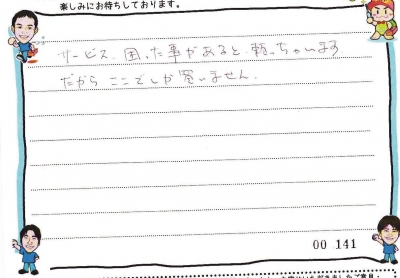 楽しみにお待ちしております。
サービス、困った事があると、頼っちゃいます
だから ここでしか買いません。
00 141